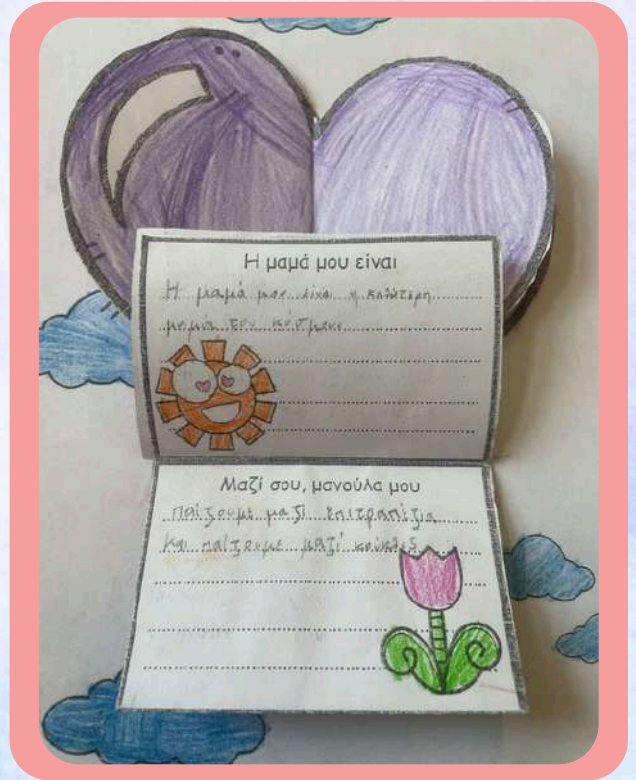 Η μαμά μου είναι
Η μαμά μου είναι η καλύτερη
μαμά του κόσμου
Μαζί σου, μανούλα μου
παίζουμε μαζί επιτραπέζια
και παίζουμε μαζί κούκλες